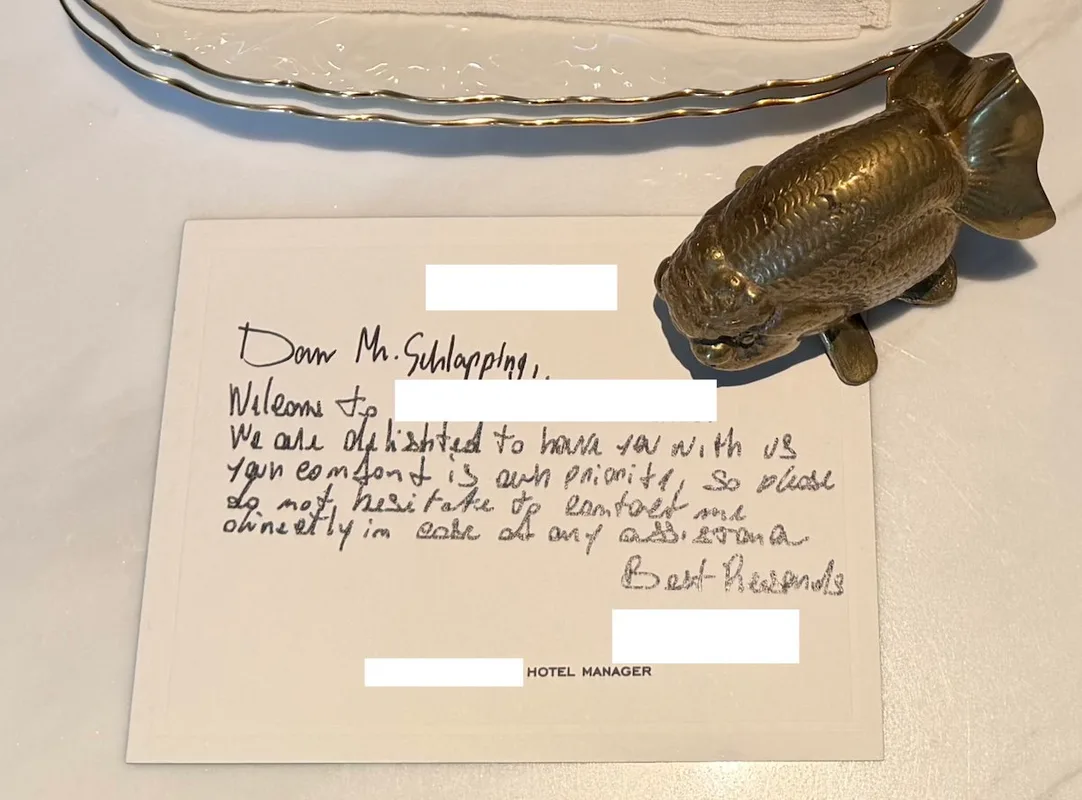 Dear Mr. Schlapping,
Welcome to
We are delighted to have you with us
your comfort is our priority, so please
do not hesitate to contact me
directly in case of any assistance
Best Regards
HOTEL MANAGER